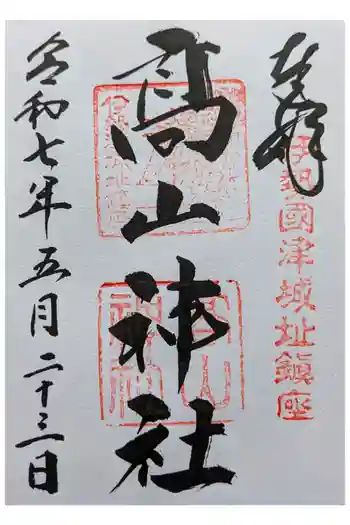 奉拝
伊勢國津城址鎮座
高山神社
高山神社
令和七年五月二十三日